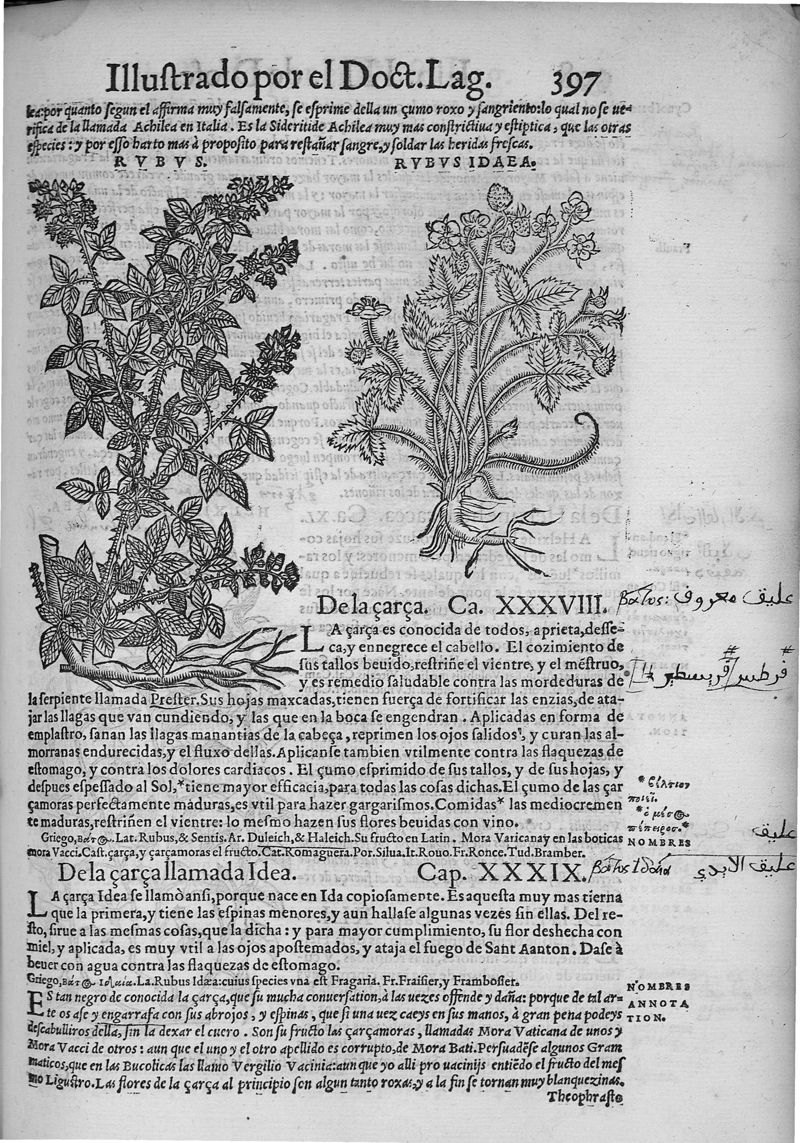 Illustrado por el Doct. Lag. 397
ſea: por quanto ſegun el affirma muy falſamente, ſe eſprime della un çumo roxo y ſangriento: lo qual no ſe ue-
rifica de la llamada Achilea en Italia. Es la Sideritide Achilea muy mas conſtrictiua y eſtiptica, que las otras
eſpecies: y por eſſo harto mas à propoſito para reſtañar ſangre, y ſoldar las heridas freſcas.
RVBVS. RVBVS IDAEA.
De la çarça. Ca. XXXVIII.
βάτος: عليق معروف
LA çarça es conocida de todos, aprieta, deſſe-
ca, y ennegrece el cabello. El cozimiento de
ſus tallos beuido, reſtriñe el vientre, y el mẽſtruo,
y es remedio ſaludable contra las mordeduras de
la ſerpiente llamada Preſter. Sus hojas maxcadas, tienen fuerça de fortificar las enzias, de ata-
jar las llagas que van cundiendo, y las que en la boca ſe engendran. Aplicadas en forma de
emplaſtro, ſanan las llagas manantias de la cabeça, reprimen los ojos ſalidos, y curan las al-
morranas endurecidas, y el fluxo dellas. Aplicanſe tambien vtilmente contra las flaquezas de
eſtomago, y contra los dolores cardiacos. El çumo eſprimido de ſus tallos, y de ſus hojas, y
deſpues eſpeſſado al Sol,* tiene mayor efficacia, para todas las coſas dichas. El çumo de las çar
çamoras perfectamente maduras, es vtil para hazer gargariſmos. Comidas* las mediocremen
te maduras, reſtriñen el vientre: lo meſmo hazen ſus flores beuidas con vino.
* βέλτιον
ποιεῖ.
* ὁ μέσος
πέπειρος.*
عليق
NOMBRES
Griego, Βάτος. Lat. Rubus, & Sentis. Ar. Duleich, & Haleich. Su fructo en Latin. Mora Varicana y en las boticas
mora Vacci. Caſt. çarça, y çarçamoras el fructo. Cat. Romaguera. Por. Silua. It. Rouo. Fr. Ronce. Tud. Bramber.
De la çarça llamada Idea. Cap. XXXIX.
βάτος ἰδαία عليق الايدي
LA çarça Idea ſe llamò anſi, porque nace en Ida copioſamente. Es aqueſta muy mas tierna
que la primera, y tiene las eſpinas menores, y aun hallaſe algunas vezes ſin ellas. Del re-
ſto, ſirue a las meſmas coſas, que la dicha: y para mayor cumplimiento, ſu flor deshecha con
miel, y aplicada, es muy vtil a los ojos apoſtemados, y ataja el fuego de Sant Aanton. Daſe à
beuer con agua contra las flaquezas de eſtomago.
Griego, Βάτος Ἰδαία. La. Rubus Idæa: cuius ſpecies vna eſt Fragaria. Fr. Fraiſier, y Framboſier.
NOMBRES
ES tan negro de conocida la çarça, que ſu mucha conuerſation, à las uezes offende y daña: porque de tal ar-
te os aſe y engarrafa con ſus abrojos, y eſpinas, que ſi una uez caeys en ſus manos, à gran pena podeys
deſcabulliros della, ſin la dexar el cuero. Son ſu fructo las çarçamoras, llamadas Mora Vaticana de unos y
Mora Vacci de otros: aun que el uno y el otro apellido es corrupto, de Mora Bati. Perſuadẽſe algunos Gram
maticos, que en las Bucolicas las llamo Vergilio Vacinia: aun que yo alli pro uacinijs entiẽdo el fructo del meſ
mo Liguſtro. Las flores de la çarça al principio ſon algun tanto roxas, y a la fin ſe tornan muy blanquezinas.
ANNOTA
TION.
Theophraſto